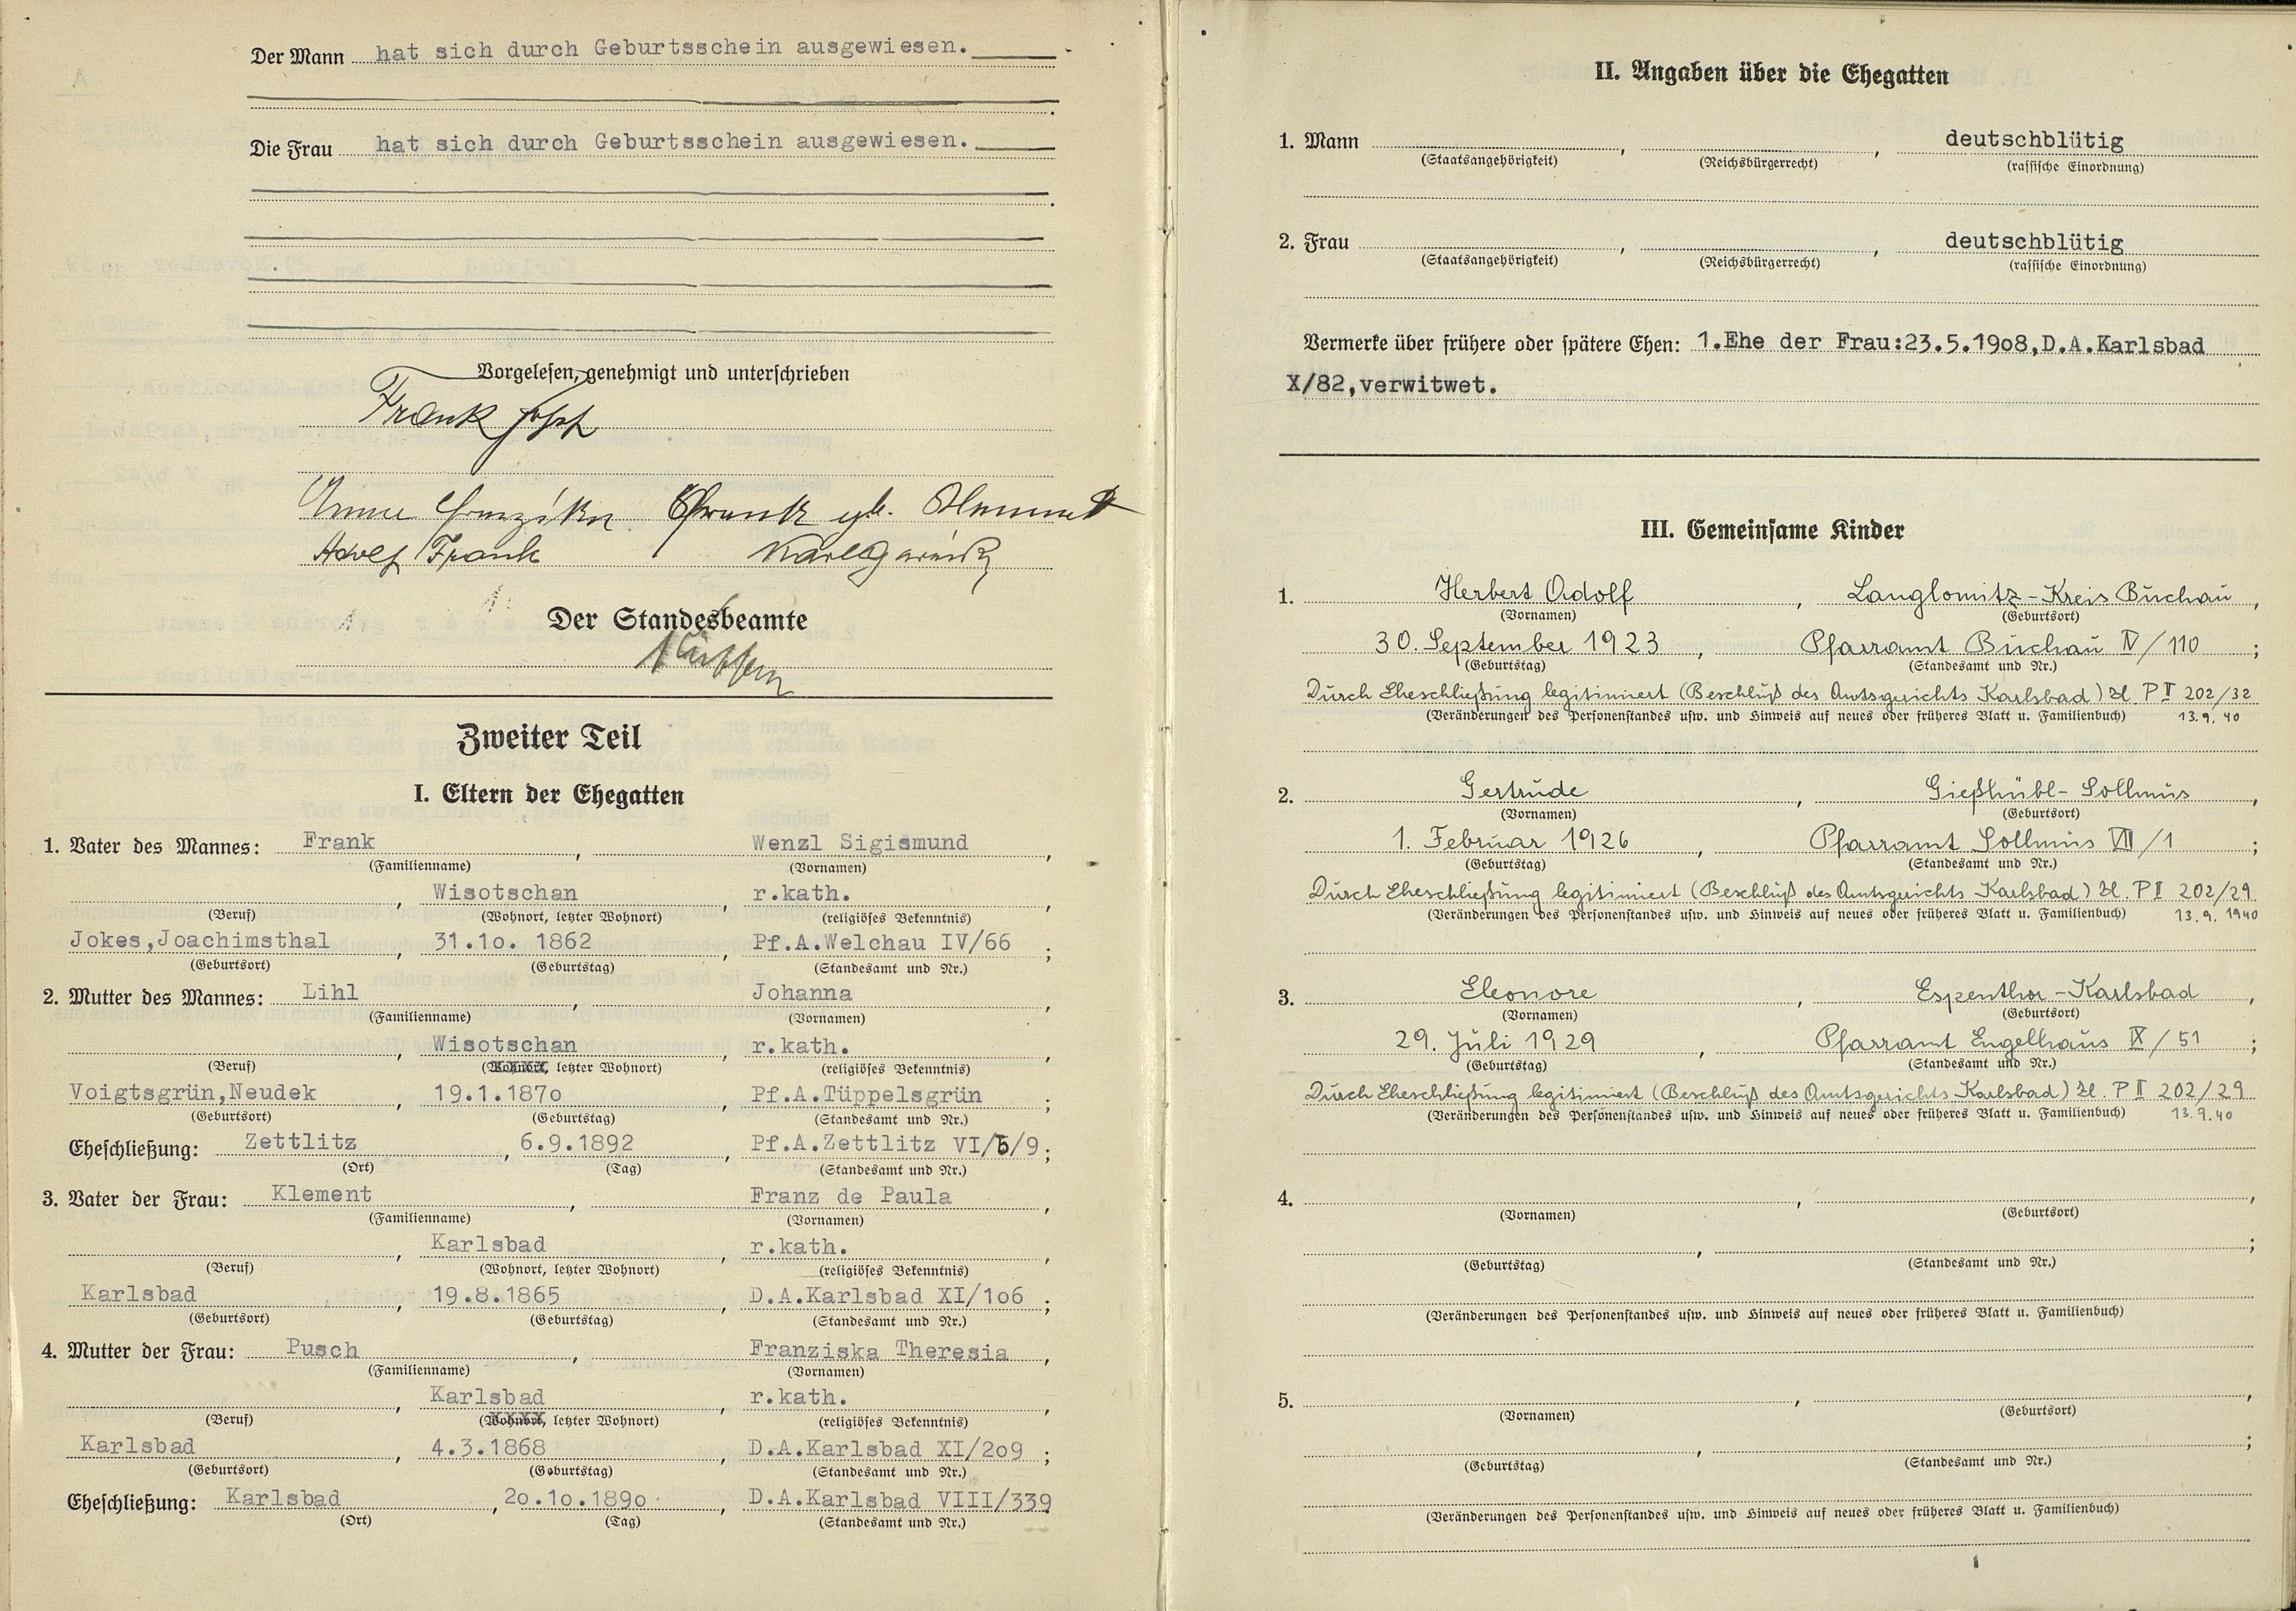 Der Mann hat sich durch Geburtsschein ausgewiesen.
Die Frau hat sich durch Geburtsschein ausgewiesen.
Vorgelesen, genehmigt und unterschrieben
Frank Josef
Anna Franziska Frank geb. Klement
Adolf Frank Karl
Der Standesbeamte
Zweiter Teil
I. Eltern der Ehegatten
1. Vater des Mannes: Frank, Wenzl Sigismund,
(Familienname) (Vornamen)
, Wisotschan, r.kath.,
(Beruf) (Wohnort, letzter Wohnort) (religiöses Bekenntnis)
Jokes,Joachimsthal, 31.10. 1862, Pf.A.Welchau IV/66;
(Geburtsort) (Geburtstag) (Standesamt und Nr.)
2. Mutter des Mannes: Lihl, Johanna,
(Familienname) (Vornamen)
, Wisotschan, r.kath.,
(Beruf) (Wohnort, letzter Wohnort) (religiöses Bekenntnis)
Voigtsgrün,Neudek, 19.1.1870, Pf.A.Tüppelsgrün;
(Geburtsort) (Geburtstag) (Standesamt und Nr.)
Eheschließung: Zettlitz, 6.9.1892, Pf.A.Zettlitz VI/6/9;
(Ort) (Tag) (Standesamt und Nr.)
3. Vater der Frau: Klement, Franz de Paula,
(Familienname) (Vornamen)
, Karlsbad, r.kath.,
(Beruf) (Wohnort, letzter Wohnort) (religiöses Bekenntnis)
Karlsbad, 19.8.1865, D.A.Karlsbad XI/106;
(Geburtsort) (Geburtstag) (Standesamt und Nr.)
4. Mutter der Frau: Pusch, Franziska Theresia,
(Familienname) (Vornamen)
, Karlsbad, r.kath.,
(Beruf) (Wohnort, letzter Wohnort) (religiöses Bekenntnis)
Karlsbad, 4.3.1868, D.A.Karlsbad XI/209;
(Geburtsort) (Geburtstag) (Standesamt und Nr.)
Eheschließung: Karlsbad, 20.10.1890, D.A.Karlsbad VIII/339
(Ort) (Tag) (Standesamt und Nr.)
II. Angaben über die Ehegatten
1. Mann , , deutschblütig
(Staatsangehörigkeit) (Reichsbürgerrecht) (rassische Einordnung)
2. Frau , , deutschblütig
(Staatsangehörigkeit) (Reichsbürgerrecht) (rassische Einordnung)
Vermerke über frühere oder spätere Ehen: 1.Ehe der Frau:23.5.1908,D.A.Karlsbad
X/82,verwitwet.
III. Gemeinsame Kinder
1. Herbert Adolf, Langlomitz-Kreis Buchau,
(Vornamen) (Geburtsort)
30. September 1923, Pfarramt Buchau IV/110;
(Geburtstag) (Standesamt und Nr.)
Durch Eheschließung legitimiert (Beschluß des Amtsgerichts Karlsbad) Zl. P II 202/32
(Veränderungen des Personenstandes usw. und Hinweis auf neues oder früheres Blatt u. Familienbuch) 13.9.40
2. Gertrude, Gießhübl-Sollmus,
(Vornamen) (Geburtsort)
1. Februar 1926, Pfarramt Sollmus VII/1;
(Geburtstag) (Standesamt und Nr.)
Durch Eheschließung legitimiert (Beschluß des Amtsgerichts Karlsbad) Zl. P II 202/29.
(Veränderungen des Personenstandes usw. und Hinweis auf neues oder früheres Blatt u. Familienbuch) 13.9.1940
3. Eleonore, Espenthor-Karlsbad,
(Vornamen) (Geburtsort)
29. Juli 1929, Pfarramt Engelhaus IX/51;
(Geburtstag) (Standesamt und Nr.)
Durch Eheschließung legitimiert (Beschluß des Amtsgerichts Karlsbad) Zl. P II 202/29
(Veränderungen des Personenstandes usw. und Hinweis auf neues oder früheres Blatt u. Familienbuch) 13.9.40
4. , ,
(Vornamen) (Geburtsort)
, ;
(Geburtstag) (Standesamt und Nr.)
(Veränderungen des Personenstandes usw. und Hinweis auf neues oder früheres Blatt u. Familienbuch)
5. , ,
(Vornamen) (Geburtsort)
, ;
(Geburtstag) (Standesamt und Nr.)
(Veränderungen des Personenstandes usw. und Hinweis auf neues oder früheres Blatt u. Familienbuch)